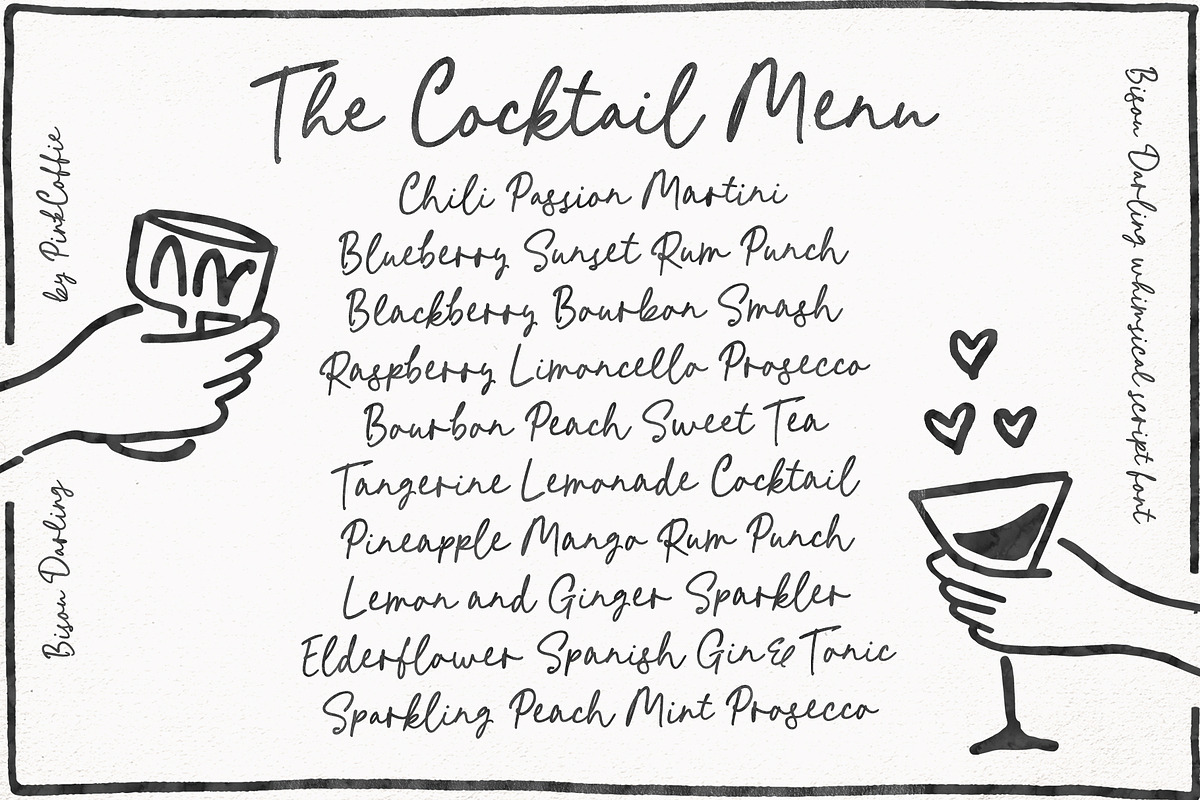 The Cocktail Menu
Chili Passion Martini
Blueberry Sunset Rum Punch
Blackberry Bourbon Smash
Raspberry Limoncello Prosecco
Bourbon Peach Sweet Tea
Tangerine Lemonade Cocktail
Pineapple Mango Rum Punch
Lemon and Ginger Sparkler
Elderflower Spanish Gin & Tonic
Sparkling Peach Mint Prosecco
by PinkCoffie
Bison Darling
Bison Darling whimsical script font